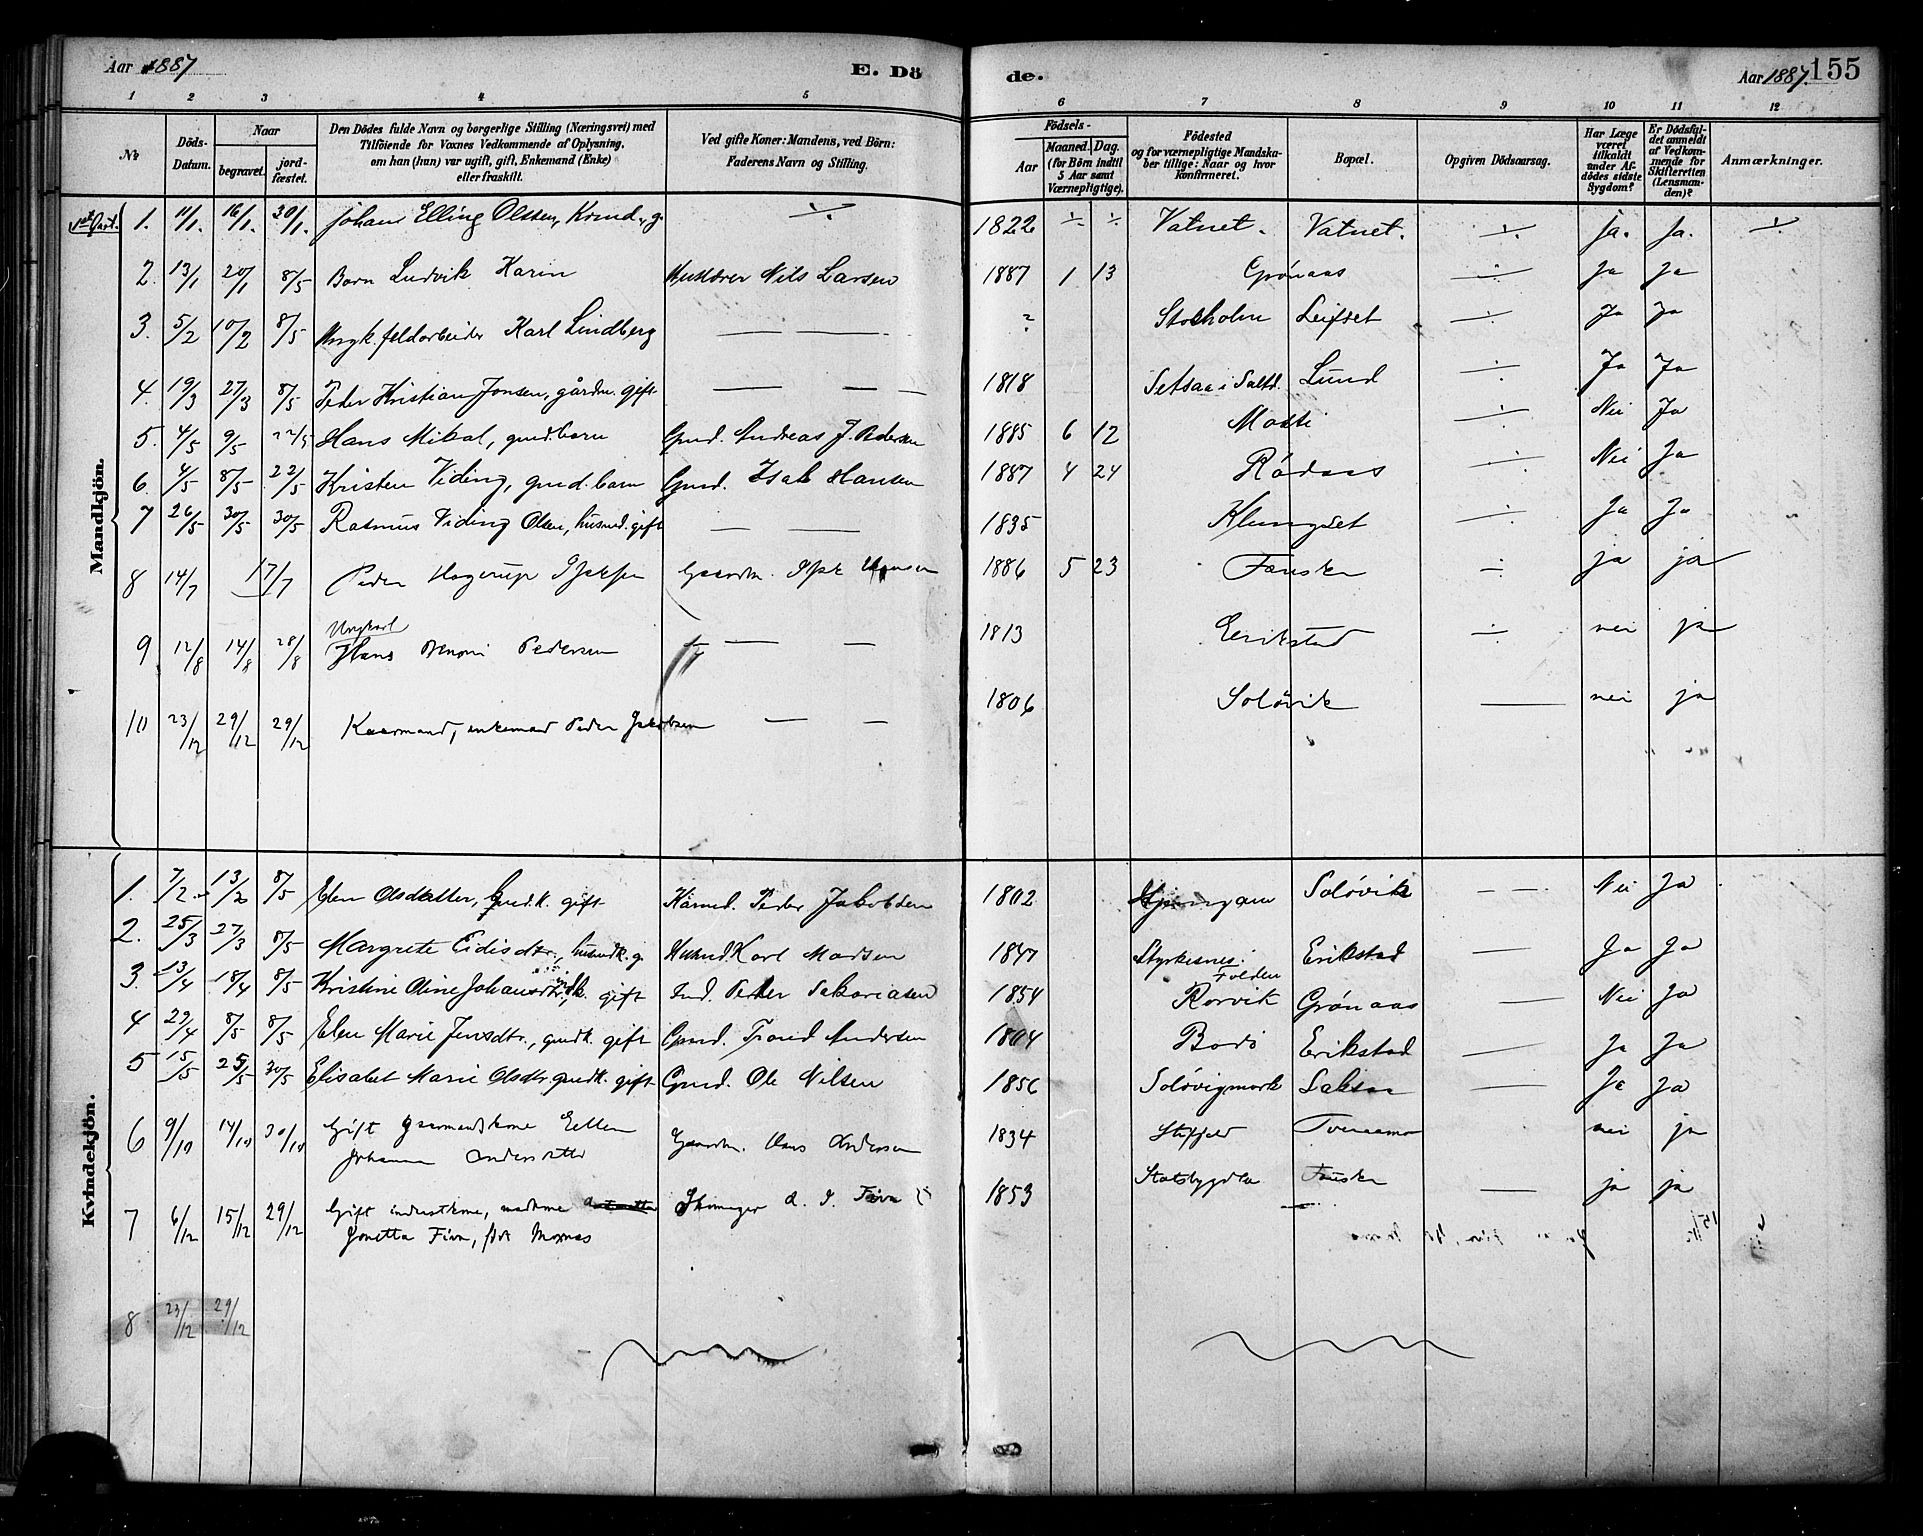 Aar 1887 E. Döde. Aar 1887. 155
1 2 3 4 5 6 7 8 9 10 11 12
№
Döds-Datum.
Naar
begravet.
jordfæstet.
Den Dödes fulde Navn og borgerlige Stilling (Næringsvei) med
Tilföiende for Voxnes Vedkommende af Oplysning,
om han (hun) var ugift, gift, Enkemand (Enke)
eller fraskilt.
Ved gifte Koner: Mandens, ved Börn:
Faderens Navn og Stilling.
Födsels-
Aar
Maaned. Dag.
(for Börn indtil
5 Aar samt
Værnepligtige).
Födested
og for værnepligtige Mandska-
ber tillige: Naar og hvor
konfirmeret.
Bopæl.
Opgiven Dödsaarsag.
Har Læge
været
tilkaldt
under Af-
dödes sidste
Sygdom?
Er Dödsfal-
det anmeldt
af Vedkom-
mende for
Skifteretten
(Lensman-
den)?
Anmærkninger.
Mandkjön.
1. 11/1. 16/1. 30/1. Johan Elling Olsen, g. ÷ 1822 ÷ ÷ Vatnet. Vatnet. ÷ ja. Ja. ÷
2. 13/1 20/1 8/5 Barn Ludvik Karin Nils Larsen 1887 1 13 Grönaas ÷ Ja Ja
3. 5/2 10/2 8/5 Karl Lindberg — — ? Stokholm Leifset ÷ Ja Ja
4. 19/3 27/3 8/5 Peder Kristian Jonsen, gårdm. gift — — — 1818 Setsaa i Saltd. Lund ÷ Ja Ja
5. 4/5 9/5 22/5 Hans Mikal, gmd. barn Gmd. Andreas J. Pedersen 1885 6 12 Mosti ÷ Nei Ja
6. 4/5 8/5 22/5 Kristen Viding, gmd. barn Gmd. Isak Hansen 1887 4 24 Rödaas ÷ Nei Ja
7 26/5 30/5 30/5 Rasmus Viding Olsen, husmd. gift — — 1835 Klungset ÷ Ja Ja
8 14/7 17/7 Peder Hagerup Gaardm. 1886 5 23 Fauske ÷ ja ja
Ungkarl
9 12/8 14/8 28/8 Hans Pedersen — — 1813 Erikstad ÷ nei ja
10 23/12 29/12 29/12 Kaarmand, enkemand Peder Jakobsen — — 1806 Solövik — nei ja
Kvindekjön.
1. 7/2 13/2 8/5 Elen Olsdatter, gmd.k. gift Kårmd. Peder Jakobsen 1802 Solövik — — Nei Ja
2. 25/3 27/3 8/5 Margrete Eidisdtr., husmdk. g. Husmd. Karl Madsen 1847 Styrkesnes. Folden Erikstad — Ja Ja
3. 13/4 18/4 8/5 Kristine Oline Johansdtr., gift Ind. Peder Sakariasen 1854 Rörvik Grönaas — Nei Ja
4 29/4 8/5 8/5 Elen Marie Jensdtr., gmdk. gift Gmd. Trond Andersen 1804 Bodö Erikstad — Ja Ja
5 15/5 25/5 30/5 Elisabet Marie Olsdtr. gmdk. gift Gmd. Ole Nilsen 1856 Solövigmark — Ja Ja
6 9/10 14/10 30/10 Gift gaarmandskone Ellen
Johanna Andersdatter Gaardm. Hans Andersen 1834 nei ja
7 6/12 15/12 29/12 Gift madame 1853 Statsbygden Fauske — ja ja
Jonetta
8 23/12 29/12